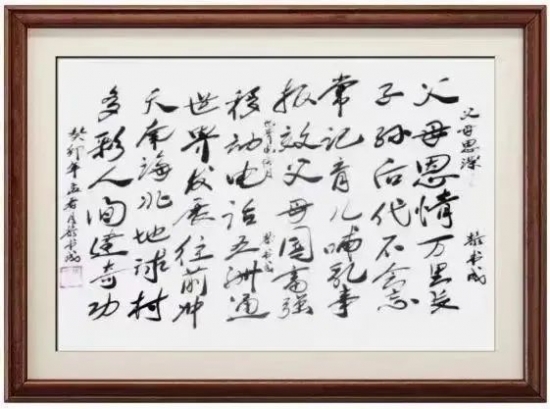 父母恩深
父母恩情万里长
子孙后代不会忘
常记育儿哺乳事
报效父母国富强
移动电话五洲通
世界发展往前冲
天南海北地球村
多彩人间建奇功
癸卯年五月书成